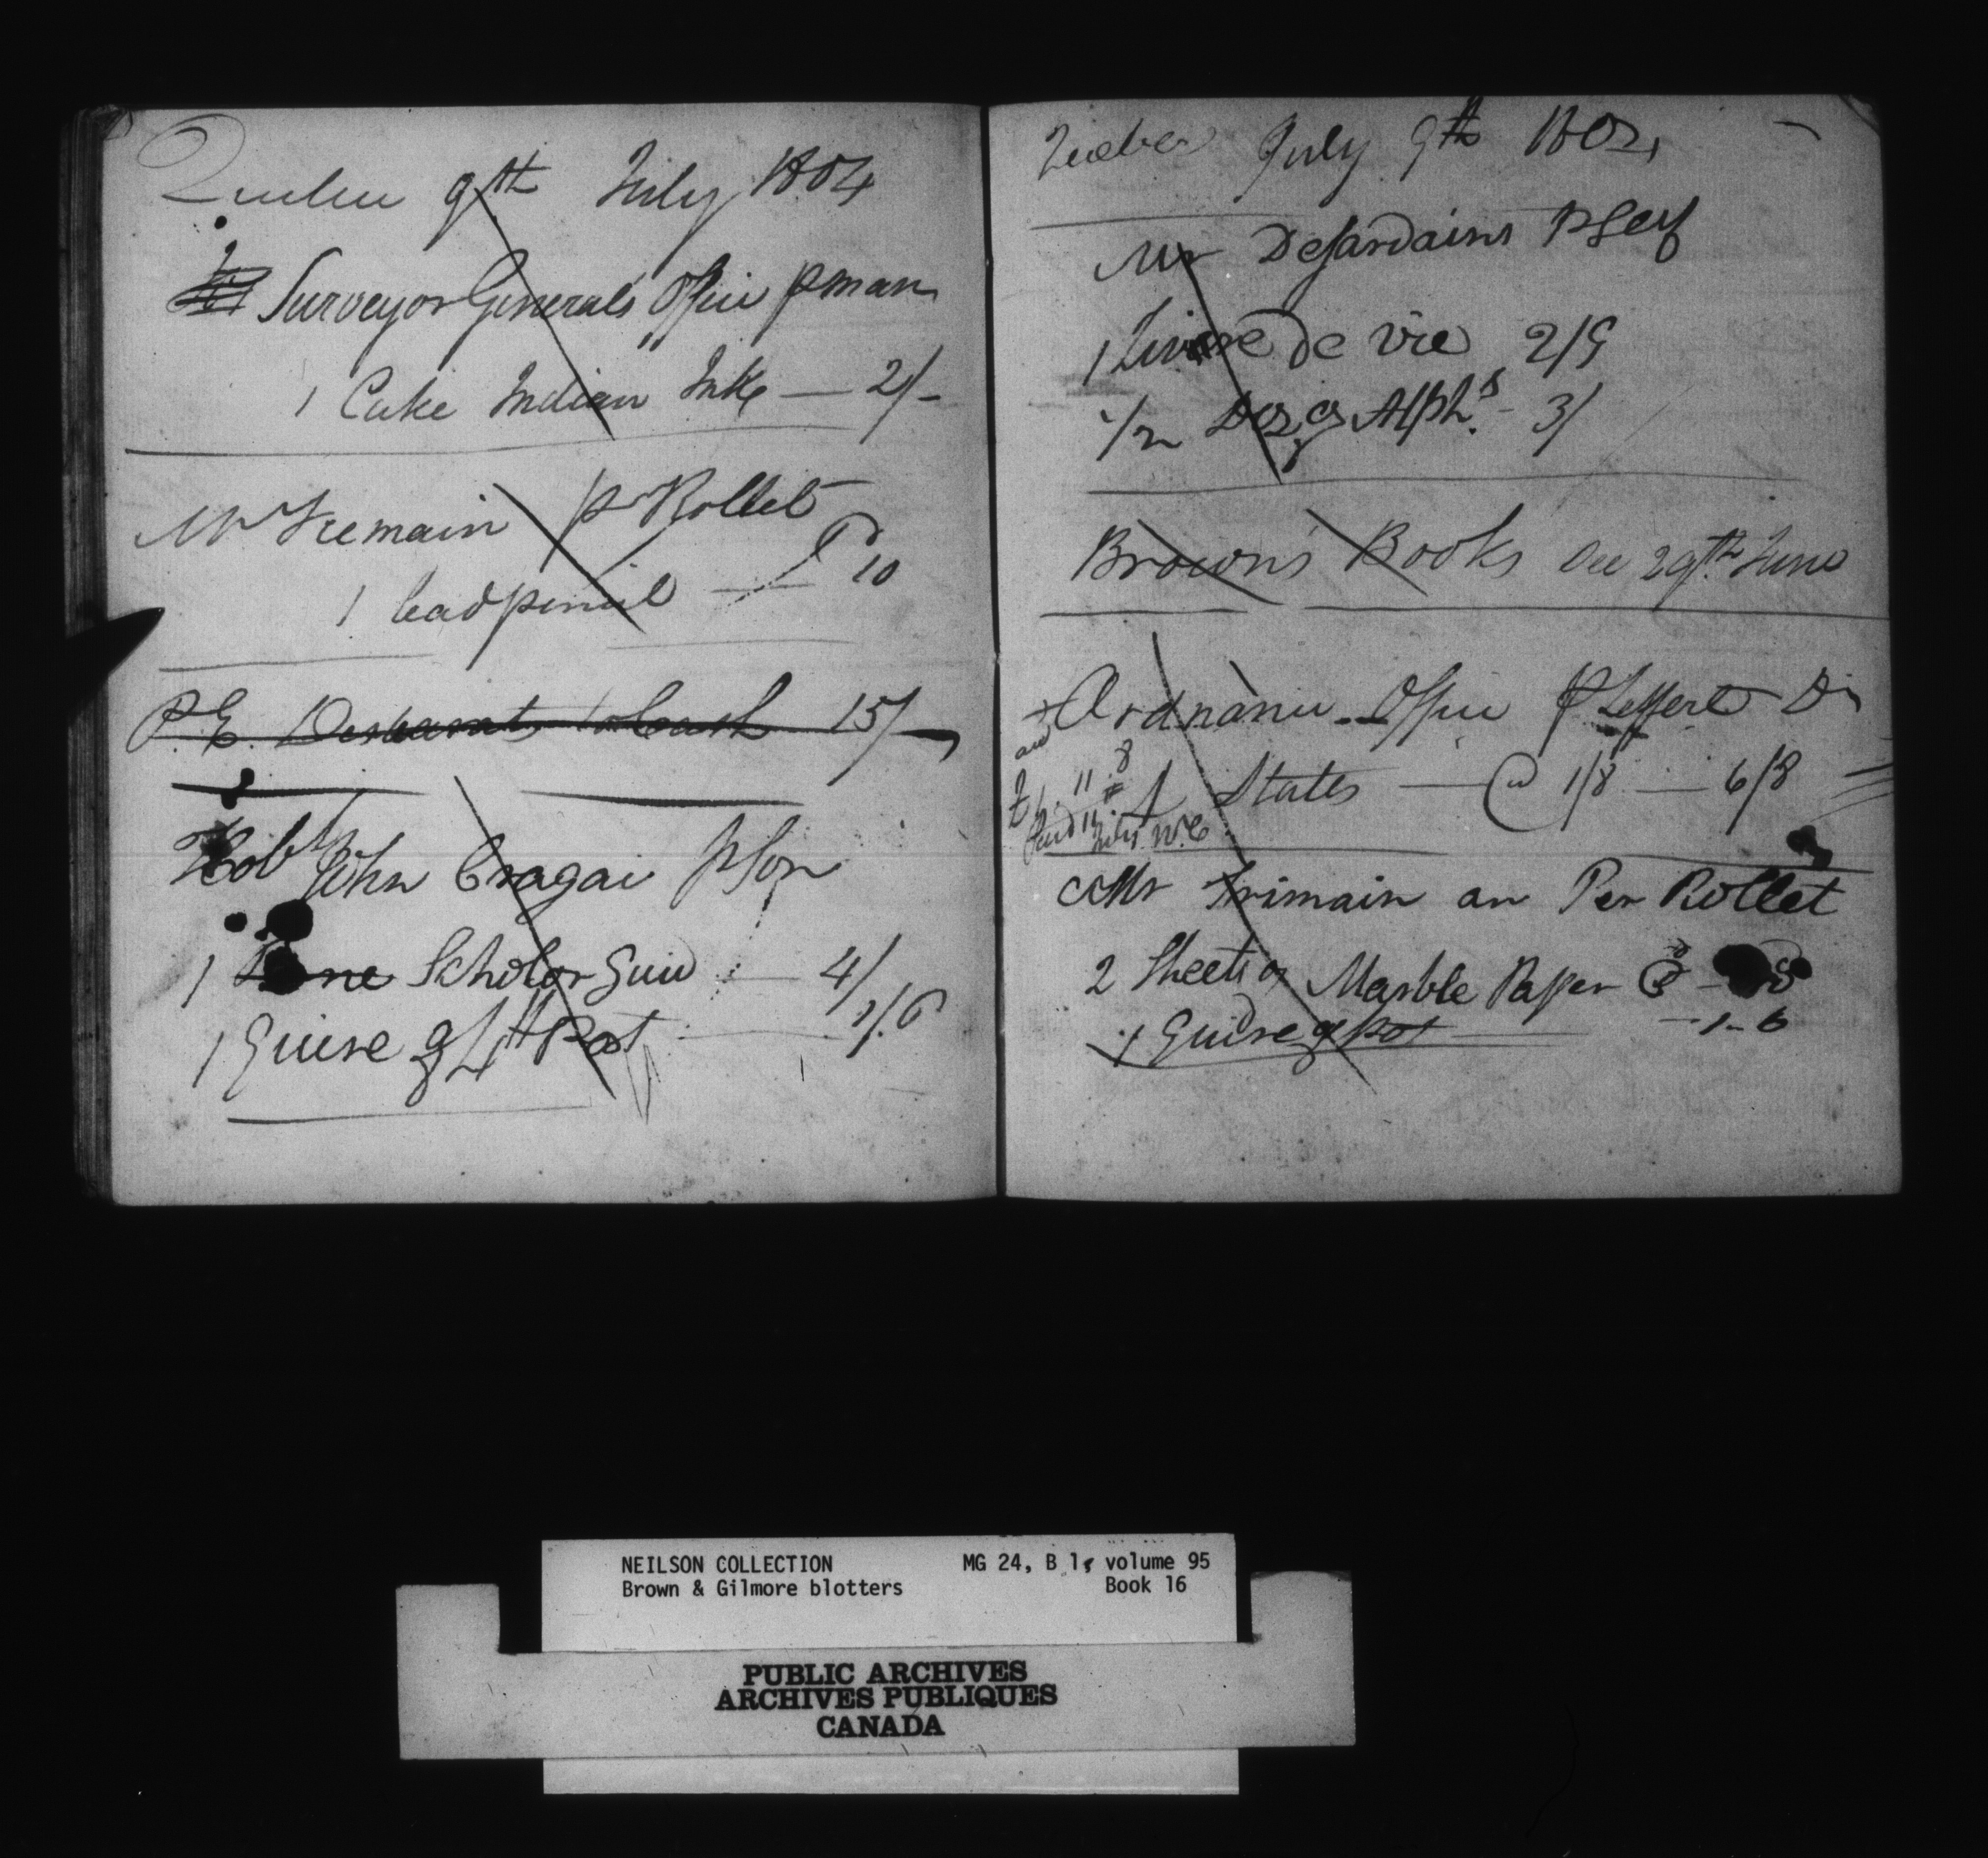 Quebec 9th July 1804
Surveyor Generals Office p man
1 Cake Indian Ink — 2/-
Mr Fremain p Rollet
1 leadpencil — 10
P. E. Desbarats to Cash 15/-
Honble John Cragai p Son
1 Scholor Guid — 4/
1 Quire of 4th Pot — 1/6
Quebec July 9th 1804
Mr Desjardains P Self
1 Livre de vie 2/9
1/2 Doz of Alphs - 3/
Browns Books See 29th June
Ordnance Office p Leffert Dr
4 States — @ 1/8 — 6/8
£ 1. 11. 8
Paid 11 July W.C
Mr Trimain an Per Rollet
2 Sheets of Marble Paper @ - 8
1 Quire of pot — 1-6
NEILSON COLLECTION MG 24, B 1, volume 95
Brown & Gilmore blotters Book 16
PUBLIC ARCHIVES
ARCHIVES PUBLIQUES
CANADA